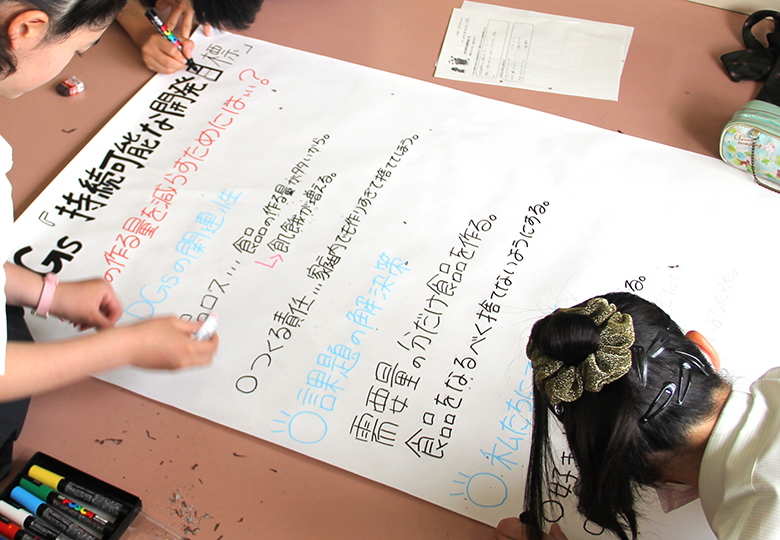 Gs 『持続可能な開発目標』
の作る量を減らすためにはい？
DGsの関連性
品ロス… 食品の作る量が多いから。
↳飢餓が増える。
○つくる責任…家庭内でも作りすぎて捨ててしまう。
○課題の解決策
需要量の分だけ食品を作る。
食品をなるべく捨てないようにある。
○私たちに
○好き
る。